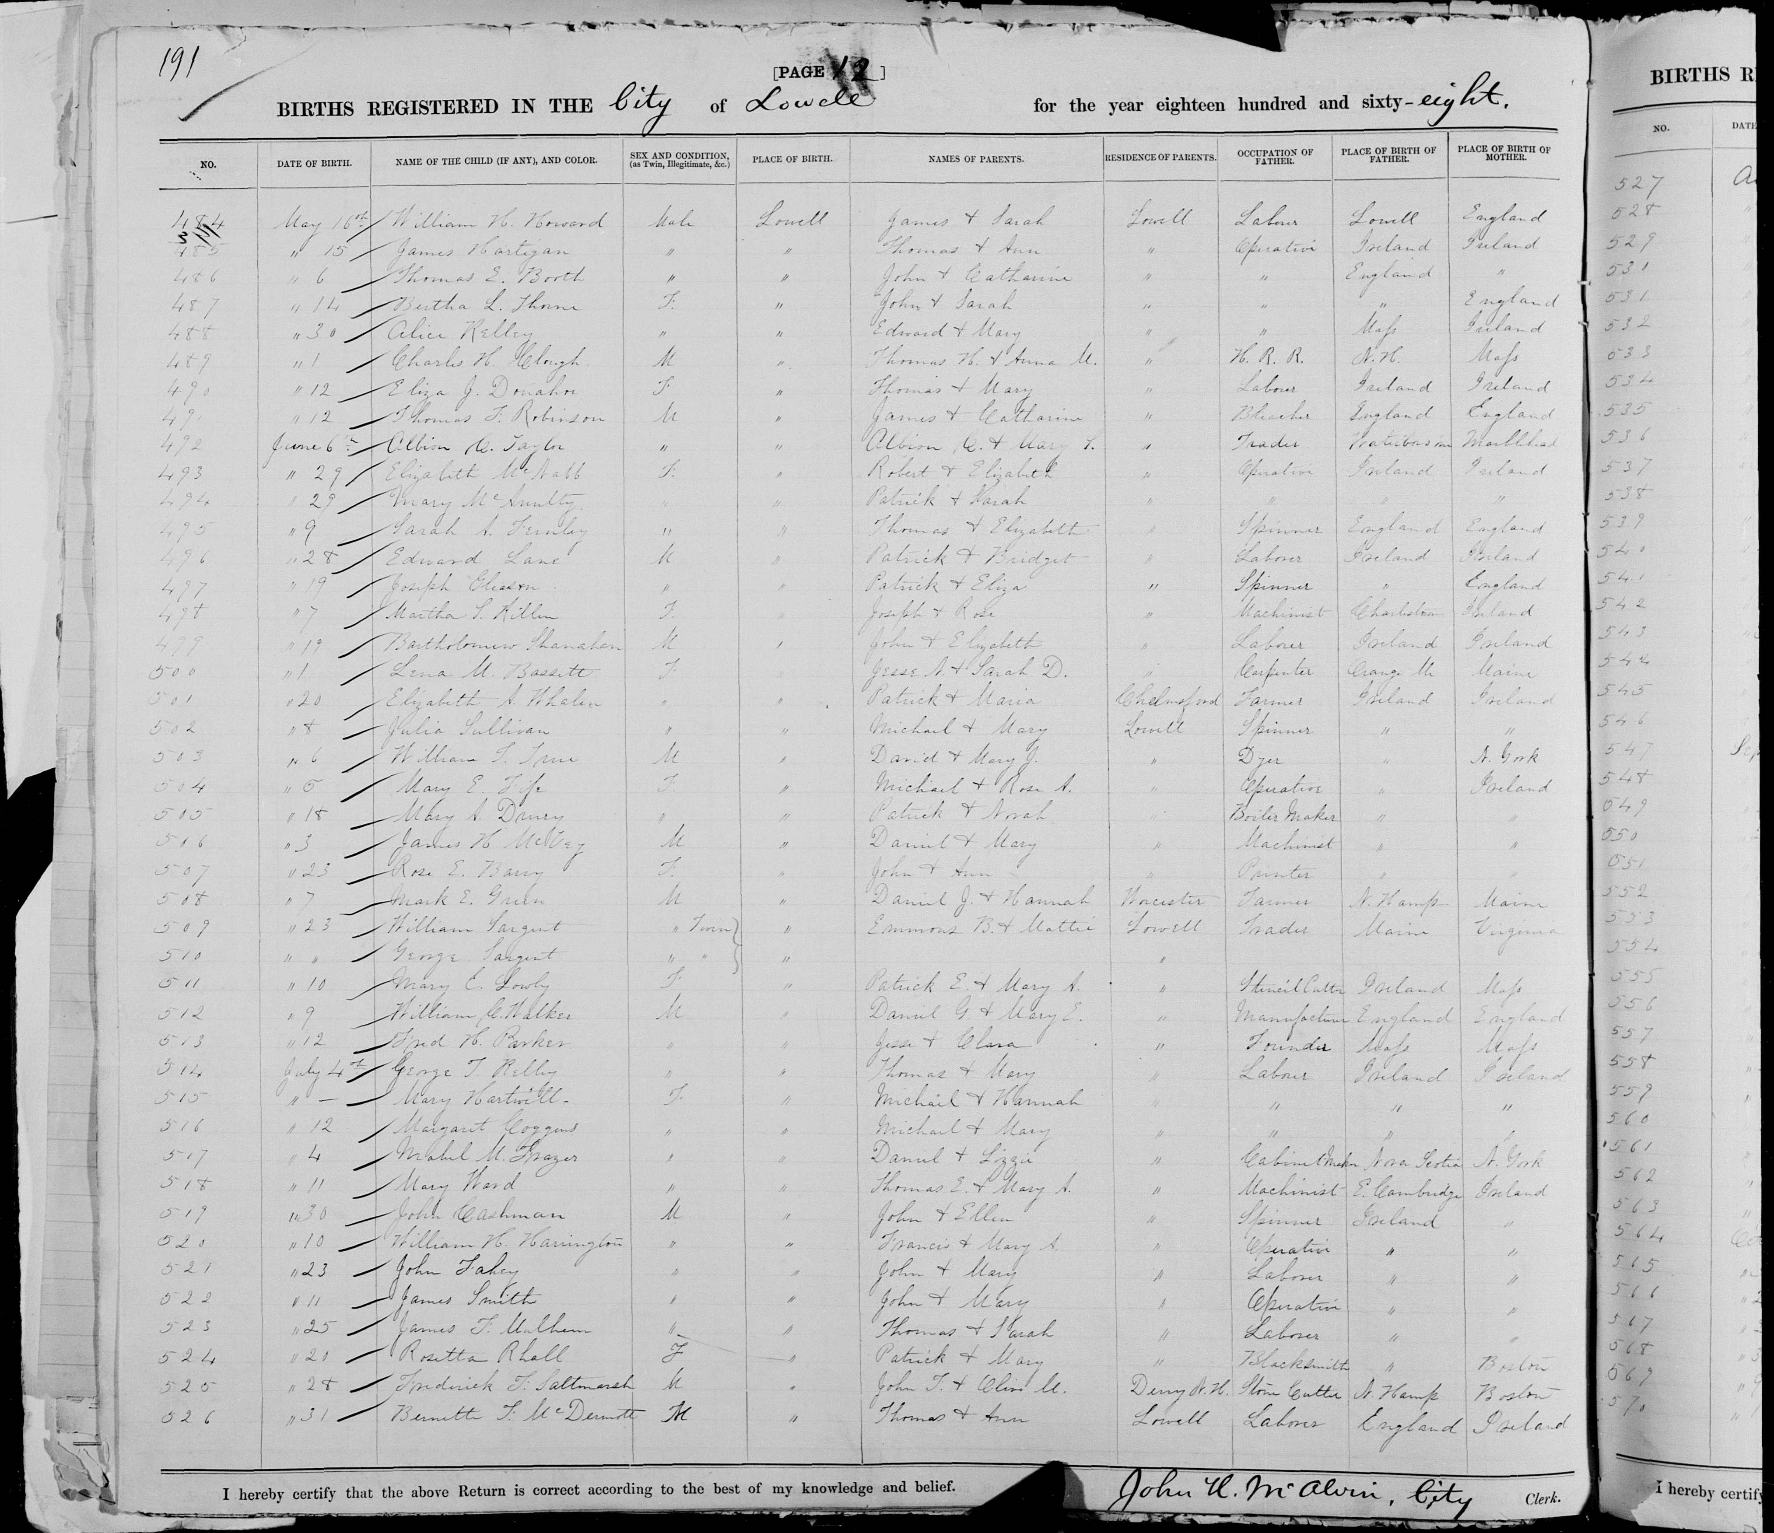 191
[PAGE 12]
BIRTHS REGISTERED IN THE City of Lowell for the year eighteen hundred and sixty-eight.
NO. DATE OF BIRTH. NAME OF THE CHILD (IF ANY), AND COLOR. SEX AND CONDITION, (as Twin, Illegitimate, &c.) PLACE OF BIRTH. NAMES OF PARENTS. RESIDENCE OF PARENTS. OCCUPATION OF FATHER. PLACE OF BIRTH OF FATHER. PLACE OF BIRTH OF MOTHER.
484 May 16th William H. Howard Male Lowell James & Sarah Lowell Laborer Lowell England
485 " 15 James Hartigan " " Thomas & Ann " Operative Ireland Ireland
486 " 6 Thomas E. Booth " " John & Catharine " " England "
487 " 14 Bertha L. Thorne F. " John & Sarah " " " England
488 " 30 Alice Kelley " " Edward & Mary " " Mass Ireland
489 " 1 Charles H. Clough M " Thomas H. & Anna M. " H. R. R. N.H. Mass
490 " 12 Eliza J. Donahoe F " Thomas & Mary " Laborer Ireland Ireland
491 " 12 Thomas F. Robinson M " James & Catharine " Bleacher England England
492 June 6th Albion C. Taylor " " Albion C. & Mary " Trader Marblehead
493 " 29 Elizabeth McNabb F. " Robert & Elizabeth " Operative Ireland Ireland
494 " 29 Mary McAnulty " " Patrick & Sarah " " " "
495 " 9 Sarah A. Fernley " " Thomas & Elizabeth " Spinner England England
496 " 28 Edward Lane M " Patrick & Bridget " Laborer Ireland Ireland
497 " 19 Joseph Gleason " " Patrick & Eliza " Spinner " England
498 " 7 Martha S. Killen F. " Joseph & Rose " Machinist Ireland
499 " 19 Bartholomew Shanahan M " John & Elizabeth " Laborer Ireland Ireland
500 " 1 Lena M. Bassett F " Jesse A. & Sarah D. " Carpenter Orange Ms Maine
501 " 20 Elizabeth A. Whalen " " Patrick & Maria Chelmsford Farmer Ireland Ireland
502 " 8 Julia Sullivan " " Michael & Mary Lowell Spinner " "
503 " 6 William S. True M " David & Mary J. " Dyer " N. York
504 " 5 Mary E. Fife F. " Michael & Rose A. " Operative " Ireland
505 " 18 Mary A. Drury " " Patrick & Norah " Boiler Maker " "
506 " 3 James H McVey M " Daniel & Mary " Machinist " "
507 " 23 Rose E. Barry F. " John & Ann " Painter " "
508 " 7 Mark E. Green M " Daniel J. & Hannah Worcester Farmer N. Hamp Maine
509 " 23 William Sargent " Twin " Emmons B. & Mattie Lowell Trader Maine Virginia
510 " " George Sargent " " " "
511 " 10 Mary E. F " Patrick E. & Mary A. " Stencil Cutter Ireland Mass
512 " 9 William C. Walker M " Daniel G & Mary E. " Manufacturer England England
513 " 12 Fred H. Parker " " Jesse & Clara " Founder Mass Mass
514 July 4th George T. Kelley " " Thomas & Mary " Laborer Ireland Ireland
515 " — Mary Hartwell F. " Michael & Hannah " " " "
516 " 12 Margaret Coggins " " Michael & Mary " " " "
517 " 4 Mabel M. Frazer " " Daniel & Lizzie " Cabinet Maker Nova Scotia N. York
518 " 11 Mary Ward " " Thomas E. & Mary A. " Machinist E. Cambridge Ireland
519 " 30 John Cashman M " John & Ellen " Spinner Ireland "
520 " 10 William H. Harrington " " Francis & Mary A. " Operative " "
521 " 23 John Fahey " " John & Mary " Laborer " "
522 " 11 James Smith " " John & Mary " Operative " "
523 " 25 James F. Mulhern " " Thomas & Sarah " Laborer " "
524 " 20 Rosetta Rhall F " Patrick & Mary " Blacksmith " Boston
525 " 28 Frederick F. Saltmarsh M " John T. & Olive M. Derry N.H. Stone Cutter N. Hamp Boston
526 " 31 F. McDermott M " Thomas & Ann Lowell Laborer England Ireland
I hereby certify that the above Return is correct according to the best of my knowledge and belief.
John H. McAlvin, City Clerk.
BIRTHS R
NO. DATE
527
528
529
531
531
532
533
534
535
536
537
538
539
540
541
542
543
544
545
546
547
548
549
550
551
552
553
554
555
556
557
558
559
560
561
562
563
564
565
566
567
568
569
570
I hereby certify